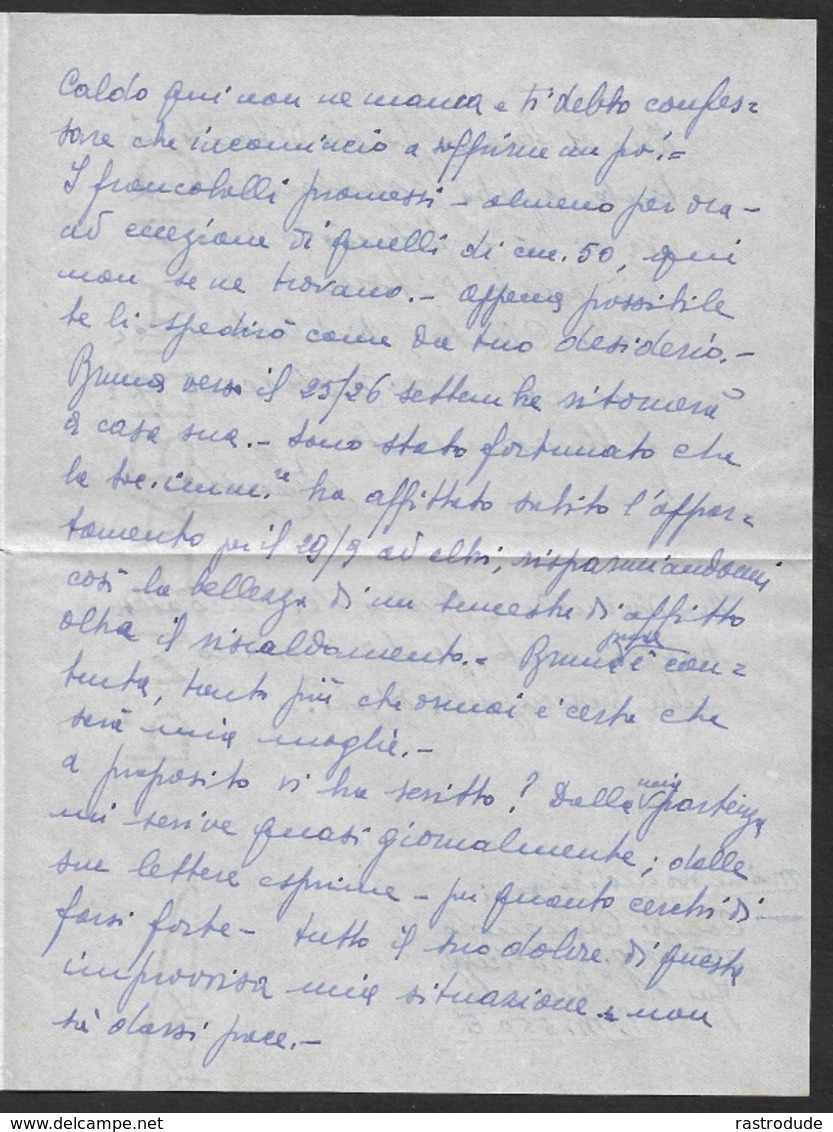 Caldo qui non ne manca e ti debbo confes=
sare che rincomincio a soffrirne un po'.=
I francobolli promessi – almeno per ora –
ad eccezione di quelli di cm. 50, qui
non se ne trovano. – Appena possibile
te li spedirò come da tuo desiderio. –
Bruna verso il 25/26 settembre ritornerà
a casa sua. – Sono stato fortunato che
la soc. imm.re ha affittato subito l'appar=
tamento per il 29/9 ad altri, risparmiandomi
così la bellezza di un semestre di affitto
oltre il riscaldamento. – Bruna pure è con=
tenta, tanto più che ormai è certa che
sarà mia moglie. –
A proposito vi ha scritto? Dalla mia partenza
mi scrive quasi giornalmente; dalle
sue lettere esprime – per quanto cerchi di
farsi forte – tutto il suo dolore di questa
improvvisa mia situazione e non
sà darsi pace. –
rastrodude